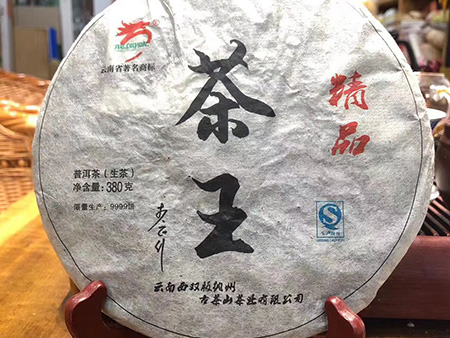 云南省著名商标
茶王
精品
普洱茶（生茶）
净含量：380克
限量生产：9999饼
云南西双版纳州
古茶山茶业有限公司